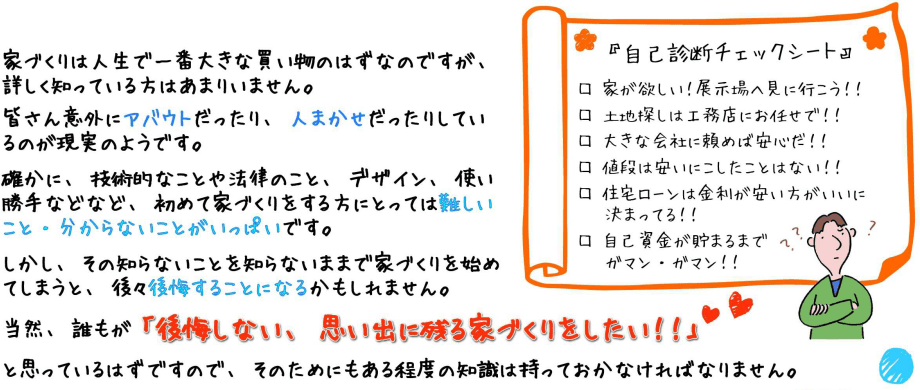 家づくりは人生で一番大きな買い物のはずなのですが、
詳しく知っている方はあまりいません。
皆さん意外にアバウトだったり、人まかせだったりしてい
るのが現実のようです。
確かに、技術的なことや法律のこと、デザイン、使い
勝手などなど、初めて家づくりをする方にとっては難しい
こと・分からないことがいっぱいです。
しかし、その知らないことを知らないままで家づくりを始め
てしまうと、後々後悔することになるかもしれません。
当然、誰もが「後悔しない、思い出に残る家づくりをしたい!!」
と思っているはずですので、そのためにもある程度の知識は持っておかなければなりません。
『自己診断チェックシート』
□ 家が欲しい!展示場へ見に行こう!!
□ 土地探しは工務店にお任せで!!
□ 大きな会社に頼めば安心だ!!
□ 値段は安いにこしたことはない!!
□ 住宅ローンは金利が安い方がいいに
決まってる!!
□ 自己資金が貯まるまで
ガマン・ガマン!!
? ? ? ?